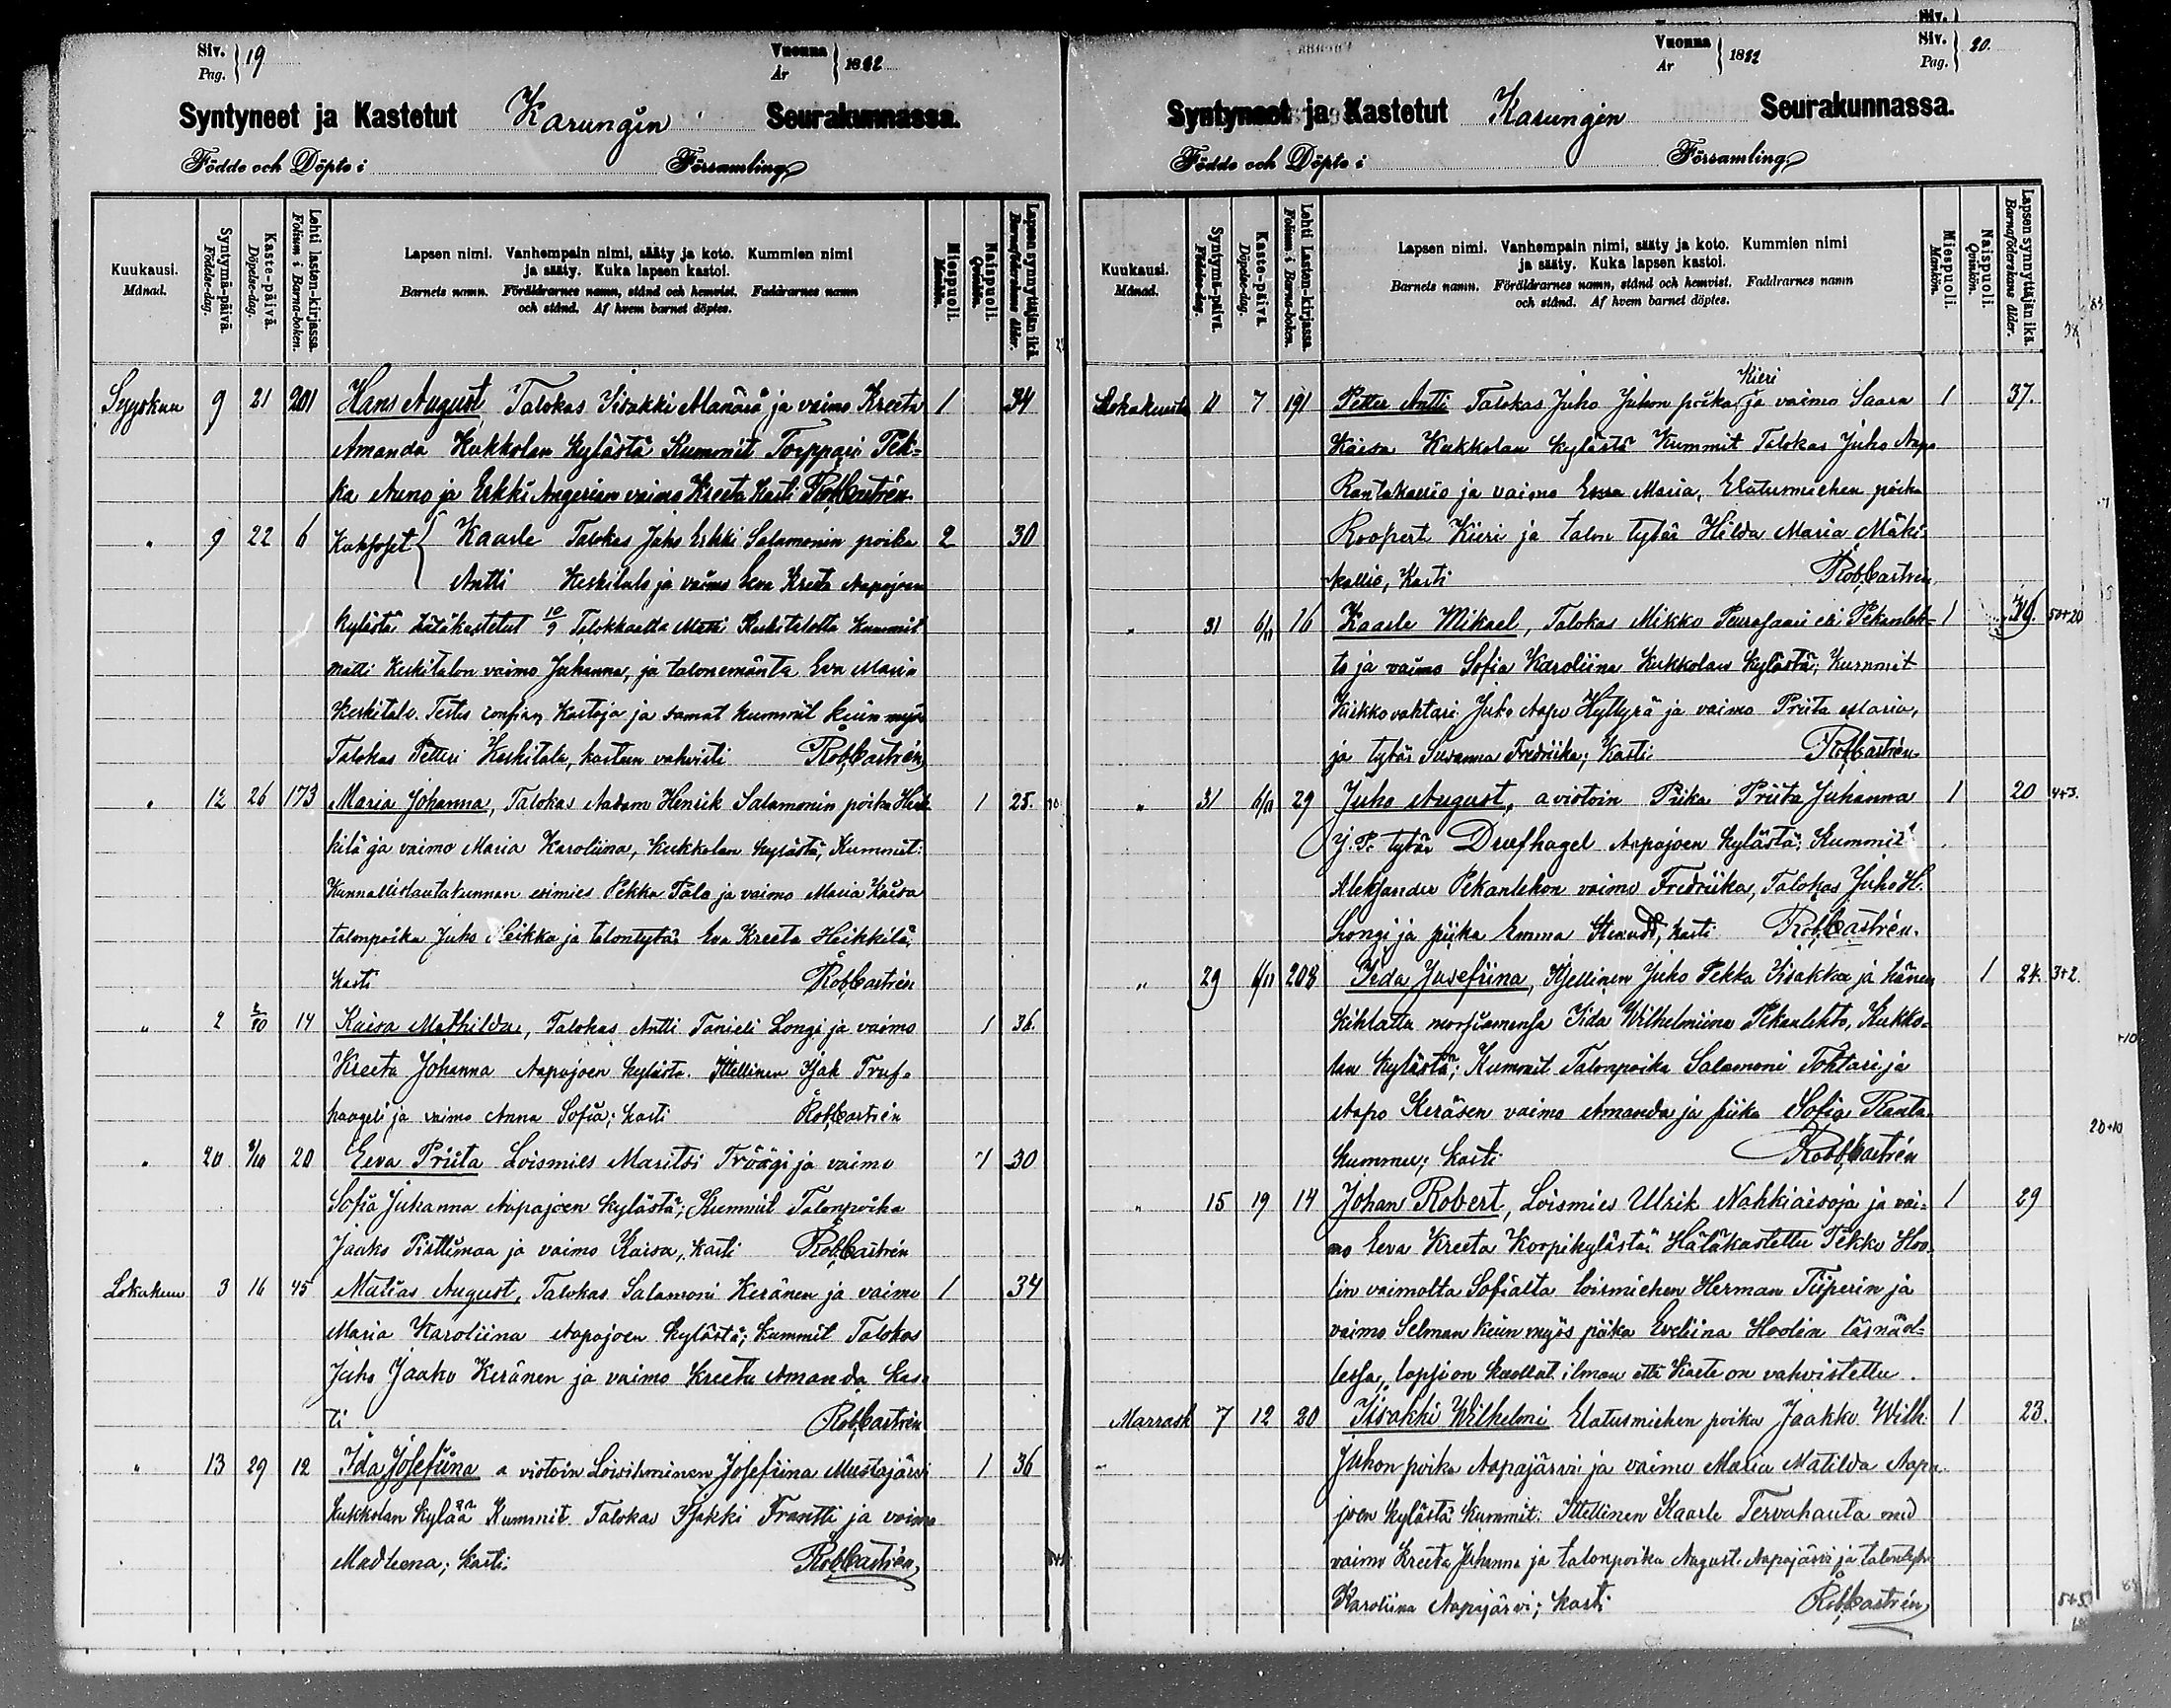 Siv. Pag. } 19
Vuonna År } 1882
Syntyneet ja Kastetut Karungin Seurakunnassa.
Födde och Döpte i Församling
Kuukausi. Månad.
Syntymä-päivä. Födelse-dag.
Kaste-päivä. Döpelse-dag.
Lehti lasten-kirjassa. Folium i Barna-boken.
Lapsen nimi. Vanhempain nimi, sääty ja koto. Kummien nimi
ja sääty. Kuka lapsen kastoi.
Barnets namn. Föräldrarnes namn, stånd och hemvist. Faddrarnes namn
och stånd. Af hvem barnet döptes.
Miespuoli. Mankön.
Naispuoli. Qvinkön.
Lapsen synnyttäjän ikä. Barnaföderskans ålder.
Syyskuu 9 21 201 Hans August, Talokas Iisakki Manära ja vaimo Kreeta 1 34
Amanda Kukkolan kylästä Kummit Torppari Pek-
ka Auno ja Erkki Angerian vaimo Kreeta Kasti RobCastrén.
" 9 22 6 Kaksoset { Kaarle Talokas Juho Erkki Salamonin poika 2 30
Antti Keskitalo ja vaimo Eeva Kreeta Aapajoen
kylästä hätäkastetut 10/9 Talokkaalta Matti Keskitalolta Kummit
Matti Keskitalon vaimo Johanna, ja talonemäntä Eva Maria
Keskitalo. Testes confirm Kastoja ja samat kummit kuin myös
Talokas Petteri Keskitalo, kasteen vahvisti RobCastrén
" 12 26 173 Maria Johanna, Talokas Aadam Henrik Salamonin poika Heik- 1 25.
kilä ja vaimo Maria Karoliina, Kukkolan kylästä, Kummit:
Kunnallislautakunnan esimies Pekka Talo ja vaimo Maria Kaisa
talonpoika Juho Heikka ja talontytär Eva Kreeta Heikkilä;
kasti RobCastrén
" 2 8/10 14 Kaisa Mathilda, Talokas Antti Tanieli Longi ja vaimo 1 36.
Kreeta Johanna Aapajoen kylästä. Ittellinen Isak Truf-
haageli ja vaimo Anna Sofia; kasti RobCastrén
" 20 8/10 20 Eeva Priita Loismies Maritsi Fröögi ja vaimo 1 30
Sofia Johanna Aapajoen kylästä; Kummit Talonpoika
Jaako Pirttimaa ja vaimo Kaisa, kasti RobCastrén
Lokakuu 3 16 45 Matias August, Talokas Salamoni Keränen ja vaimo 1 34
Maria Karoliina Aapajoen kylästä; kummit Talokas
Juho Jaako Keränen ja vaimo Kreeta Amanda kas-
ti RobCastrén.
" 13 29 12 Ida Josefiina a viotoin Loisihminen Josefiina Mustajärvi 1 36
Kukkolan kylää Kummit Talokas Isakki Frantti ja vaimo
Madleena; kasti. RobCastrén,
Vuonna År } 1882
Siv. Pag. } 20.
Syntyneet ja Kastetut Karungin Seurakunnassa.
Födde och Döpte i Församling
Kuukausi. Månad.
Syntymä-päivä. Födelse-dag.
Kaste-päivä. Döpelse-dag.
Lehti Lasten-kirjassa. Folium i Barna-boken.
Lapsen nimi. Vanhempain nimi, sääty ja koto. Kummien nimi
ja sääty. Kuka lapsen kastoi.
Barnets namn. Föräldrarnes namn, stånd och hemvist. Faddrarnes namn
och stånd. Af hvem barnet döptes.
Miespuoli. Mankön.
Naispuoli. Qvinkön.
Lapsen synnyttäjän ikä. Barnaföderskans ålder.
Kieri
Lokakuuta 11 7 191 Petter Antti Talokas Juho Juhon poika ja vaimo Saara 1 37.
Kaisa Kukkolan kylästä Kummit Talokas Juho Aapo
Rantakallio ja vaimo Eeva Maria, Elatusmiehen poika
Roopert Kieri ja talon tytär Hilda Maria Mäki-
kallio, Kasti RobCastrén
" 31 6/11 16 Kaarle Mikael, Talokas Mikko Peurasaari eli Pekanleh- 1 39. 50+20
to ja vaimo Sofia Karoliina Kukkolan kylästä; Kummit
Kirkkovahtari Juho Aapo Hyttyrä ja vaimo Priita Maria,
ja tytär Susanna Fredriika; Kasti RobCastrén
" 31 6/11 29 Juho August, aviotoin Piika Priita Johanna 1 20 4+3.
J. P. tytär Druefhagel Aapajoen kylästä; Kummit
Aleksander Pekanlehon vaimo Fredriika, Talokas Juho H.
Longi ja piika Emma Strandt, kasti RobCastrén.
" 29 6/11 208 Iida Jusefiina, Itsellinen Juho Pekka Iisakka ja hänen 1 24. 3+2.
kihlattu morsiamensa Iida Wilhelmiina Pekanlehto, Kukko-
lan kylästä; Kummit Talonpoika Salamoni Tohtari ja
Aapo Keräsen vaimo Amanda ja piika Sofia Rauta-
kummu; kasti RobCastrén
" 15 19 14 Johan Robert, Loismies Ulrik Nahkiaisoja ja vai- 1 29
mo Eeva Kreeta Korpikylästä. Hätäkastettu Pekko Hoo-
lin vaimolta Sofialta loismiehen Herman Tiiperin ja
vaimo Selman kuin myös piika Eveliina Hoolin läsnäol-
lessa, lapsi on kuollut ilman että kaste on vahvistettu.
Marrask 7 12 20 Iisakki Wilhelmi Elatusmiehen poika Jaakko Wilh. 1 23.
Juhon poika Aapajärvi ja vaimo Maria Matilda Aapa-
joen kylästä Kummit: Ittellinen Kaarle Tervahauta med
vaimo Kreeta Johanna ja talonpoika August Aapajärvi ja talontytär
Karoliina Aapajärvi; kasti RobCastrén